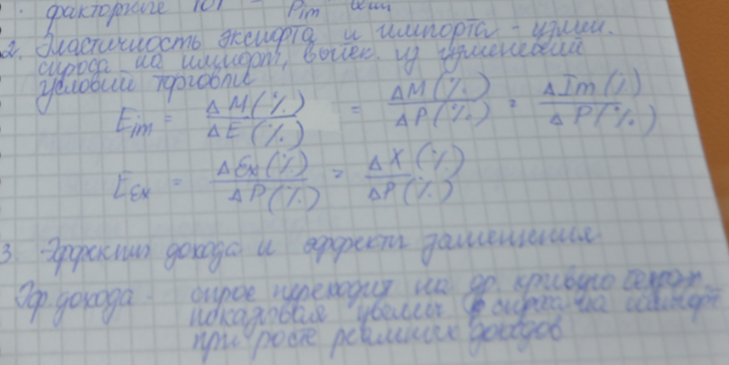 факторные TOT = Pim
2. Эластичность экспорта и импорта - измен.
спроса на импорт, вытек. из изменений
условий торговли
Eim = ΔM(%) / ΔE(%) = ΔM(%) / ΔP(%) = ΔIm(%) / ΔP(%)
EEx = ΔEx(%) / ΔP(%) = ΔX(%) / ΔP(%)
3. Эффекты дохода и эффекты замещения.
Эф. дохода - спрос переходит на др. кривую безраз.
показывая увелич спроса на импорт
при росте реальных доходов